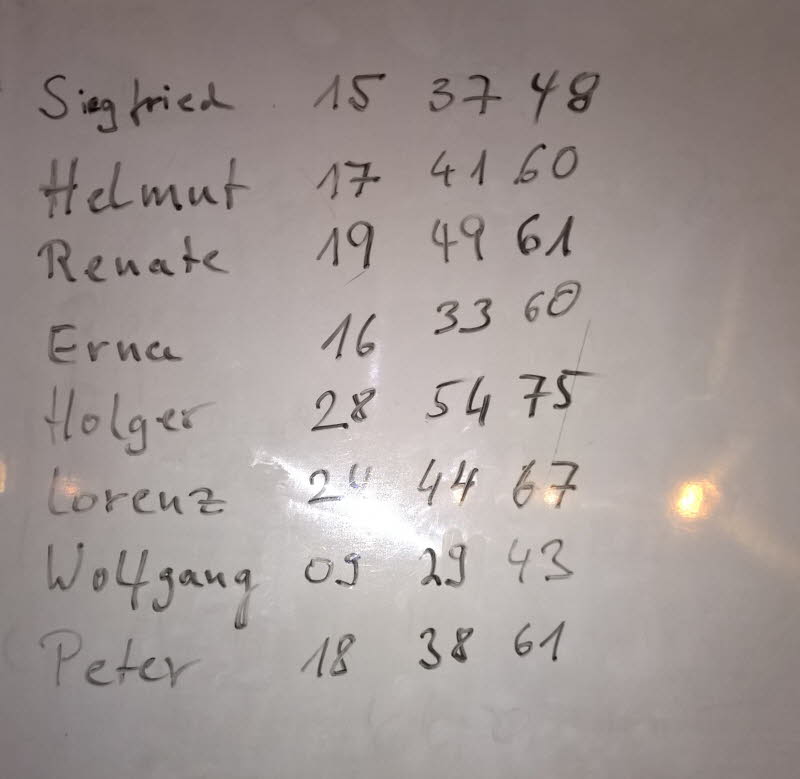 Siegfried 15 37 48
Helmut 17 41 60
Renate 19 49 61
Erna 16 33 60
Holger 28 54 75
Lorenz 44 67
Wolfgang 09 29 43
Peter 18 38 61